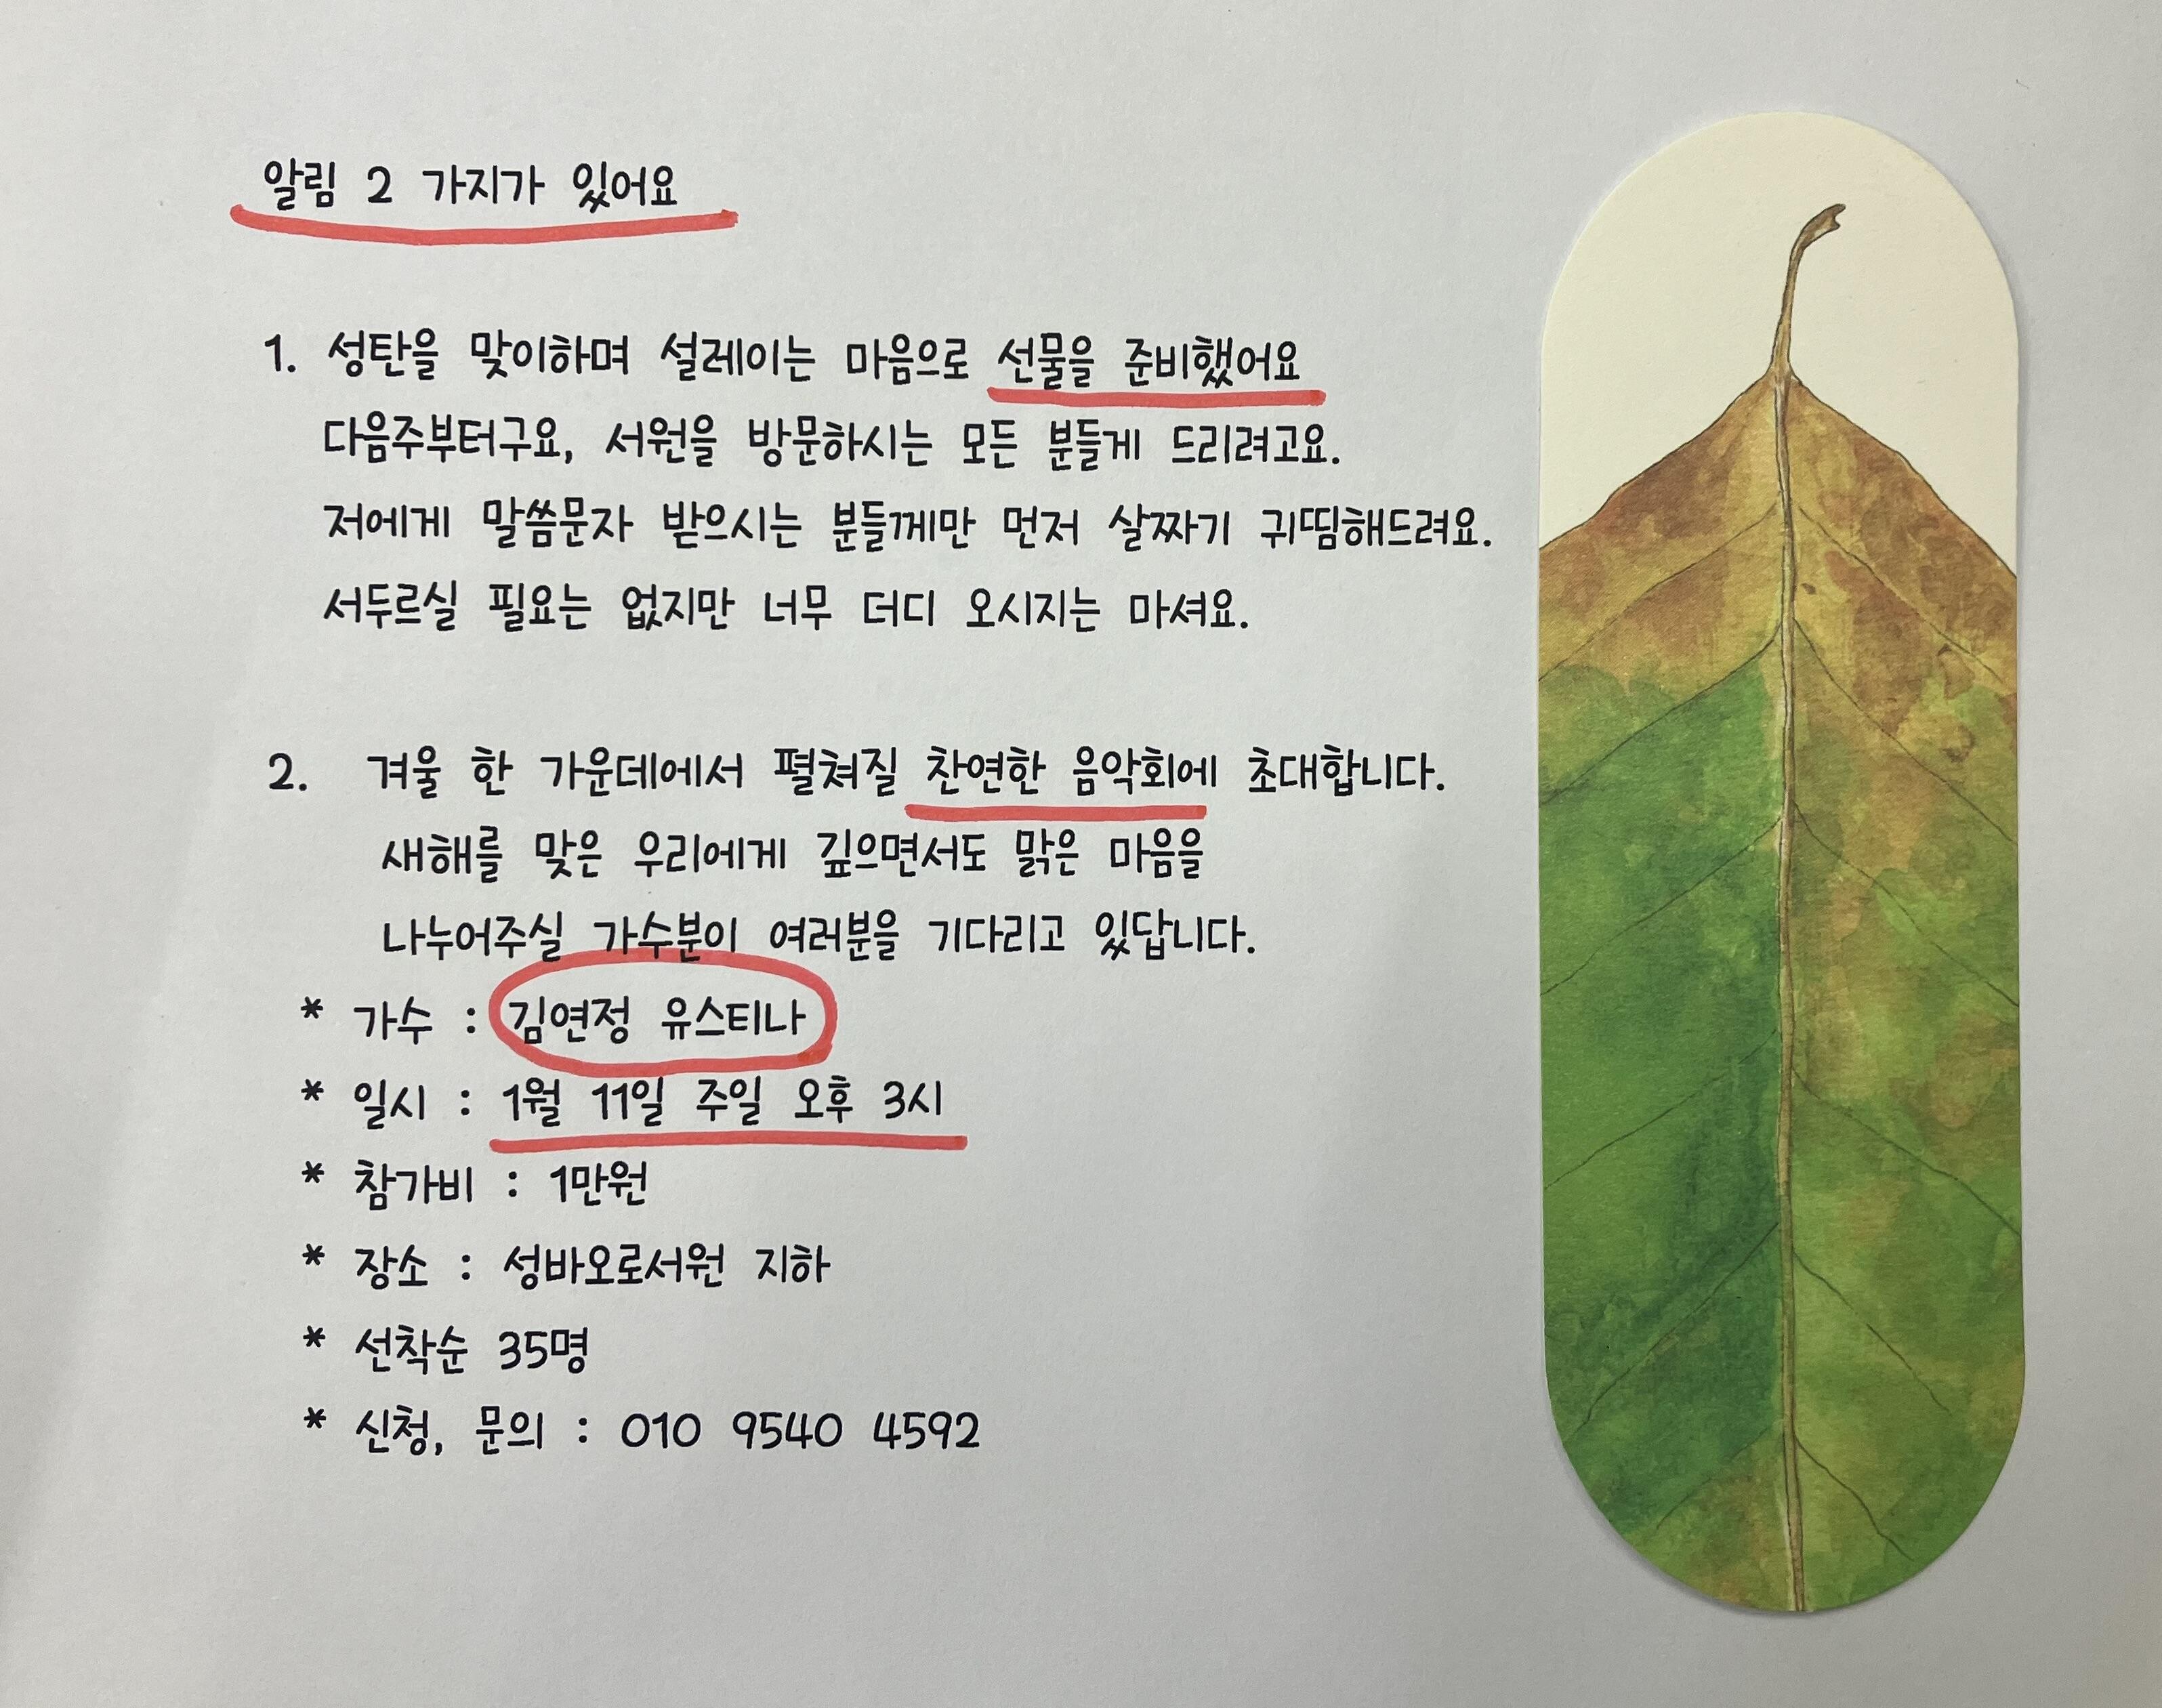 알림 2 가지가 있어요
1. 성탄을 맞이하며 설레이는 마음으로 선물을 준비했어요
다음주부터구요, 서원을 방문하시는 모든 분들게 드리려고요.
저에게 말씀문자 받으시는 분들께만 먼저 살짜기 귀띰해드려요.
서두르실 필요는 없지만 너무 더디 오시지는 마셔요.
2. 겨울 한 가운데에서 펼쳐질 찬연한 음악회에 초대합니다.
새해를 맞은 우리에게 깊으면서도 맑은 마음을
나누어주실 가수분이 여러분을 기다리고 있답니다.
* 가수 : 김연정 유스티나
* 일시 : 1월 11일 주일 오후 3시
* 참가비 : 1만원
* 장소 : 성바오로서원 지하
* 선착순 35명
* 신청, 문의 : 010 9540 4592